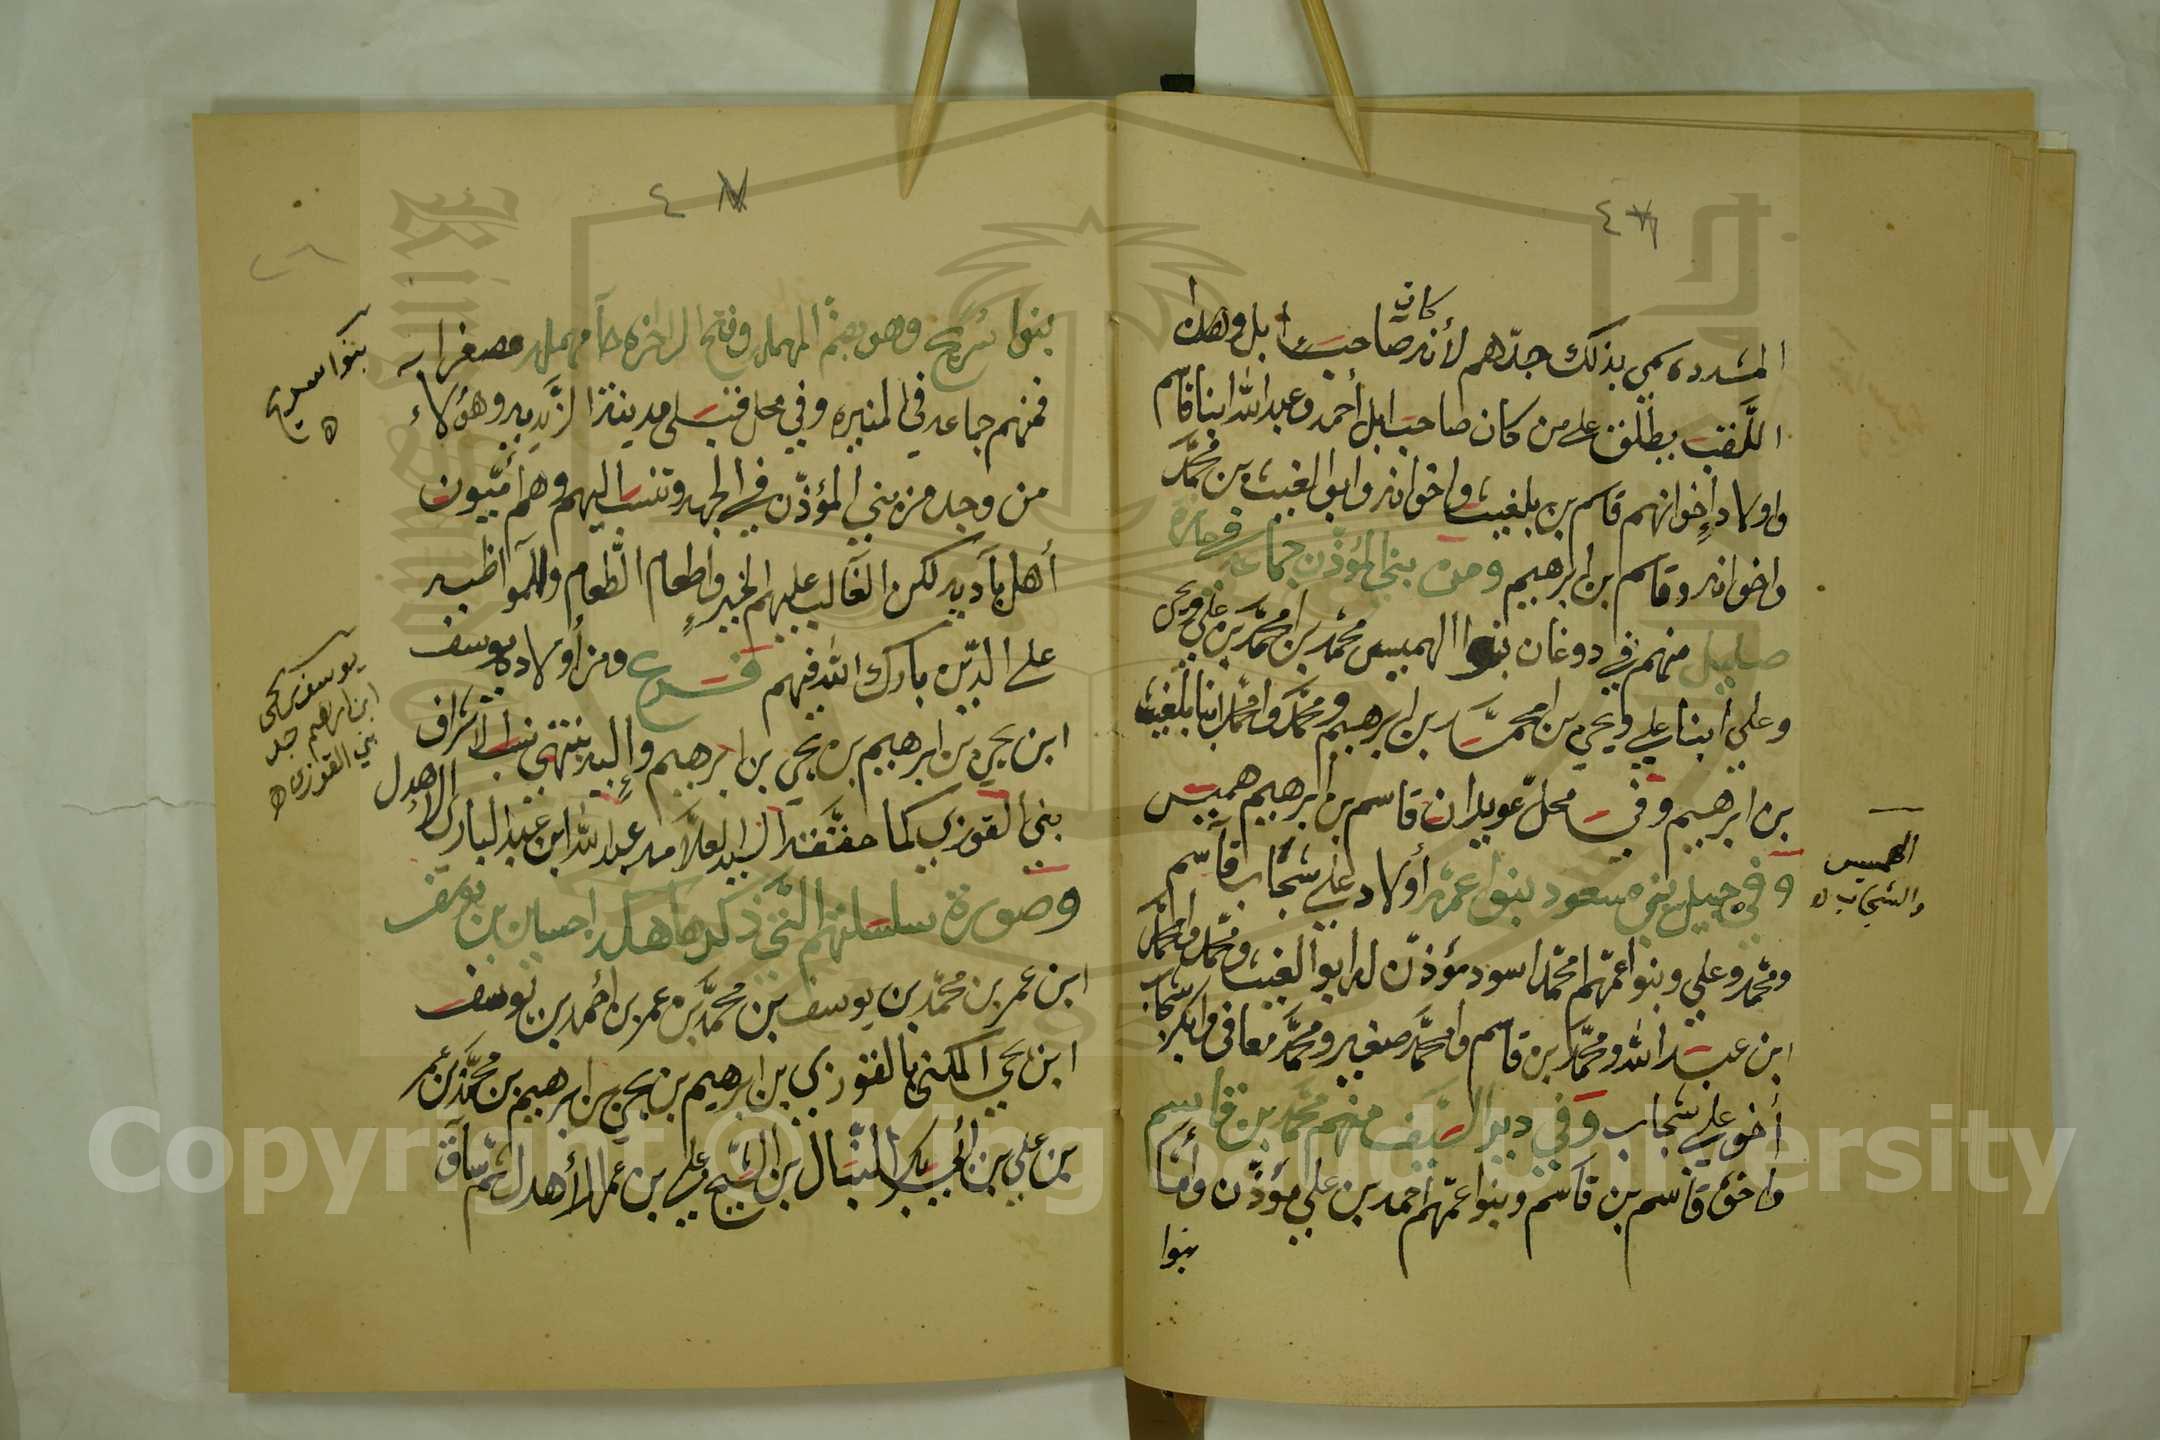 ٤٧
كان
المشدده سمي بذلك جدّهم لأنه صاحب ابل وهذا
اللّقب يطلق على من كان صاحب ابل أحمد وعبد الله ابنا قاسم
واولاد إخوانهم قاسم بن بلغيث واخوانه وابو الغيث بن محمَّد
واخوانه وقاسم ابن ابرهيم ومن بني المؤذّن جماعه في حارة
صليل منهم في دوغان بنوا الهميس محمد بن امحمَّد بن علي ويحيى
وعلي ابنا علي ويحيى بن امحمَّد بن ابرهيم ومحمَّد وامحمَّد ابنا بلغيث
بن ابرهيم وفي محلّ عويدان قاسم بن ابرهيم هميس
وفي جبيل بني مسعود بنوا عمّهم أولاد علي شجاب قاسم
ومحمد وعلي وبنوا عمّهم محمّد اسود مؤذّن له ابو الغيث ومحمّد وامحمَّد
ابن عبد الله ومحمَّد بن قاسم وامحمَّد صغير ومحمَّد معافى وابكر شجاب
أخو علي شجاب وفي دير السَّيف منهم محمَّد بن قاسم
واخوه قاسم بن قاسم وبنوا عمّهم احمد بن علي مؤذّن وأمّا
بنوا
الهميس
والشجاب ه
٤٧
بنوا سُرَيح وهو بضمّ المهمله وفتح الراخره حآ مهمله مصغرا
فمنهم جماعه في المنيره وفي محل قبلي مدينة الزَّيديه وهؤلاء
من وجد من بني المؤذّن في الجهه وتنسب اليهم وهم أمّيّون
أهل بآديه لكن الغآلب عليهم الخير وإطعام الطّعام والموآظبه
على الدّين بارك الله فيهم فرع ومن أولاده يوسف
ابن يحيى بن ابرهيم بن يحيى بن ابرهيم وإليه ينتهي نسب الأشراف
بني القوزي كما حقّقه السّيد العلاّمه عبد الله ابن عبد الباري الأهدل
وصورة سلسلتهم الّتي ذكرها هكذا حسان بن يوسف
ابن عمر بن محمّد بن يوسف بن محمَّد بن عمر بن أحمد بن يوسف
ابن يحيى المكنى بالقوزي بن ابرهيم بن يحيى بن ابرهيم بن محمَّد بن عمر
بن علي بن أبي بكر النبّال بن الشّيخ علي بن عمر الأهدل ثم سآق
بنوا سريح
ه
يوسف بن يحيى
ابن ابرهيم جد
بني القوزي ه
Copyright © King Saud University